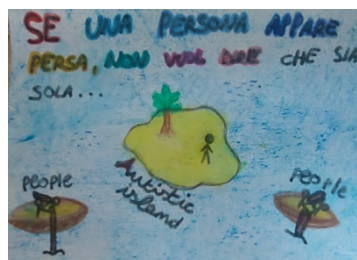 SE UNA PERSONA APPARE
PERSA, NON VUOL DIRE CHE SIA
SOLA...
people
Autistic
island
people